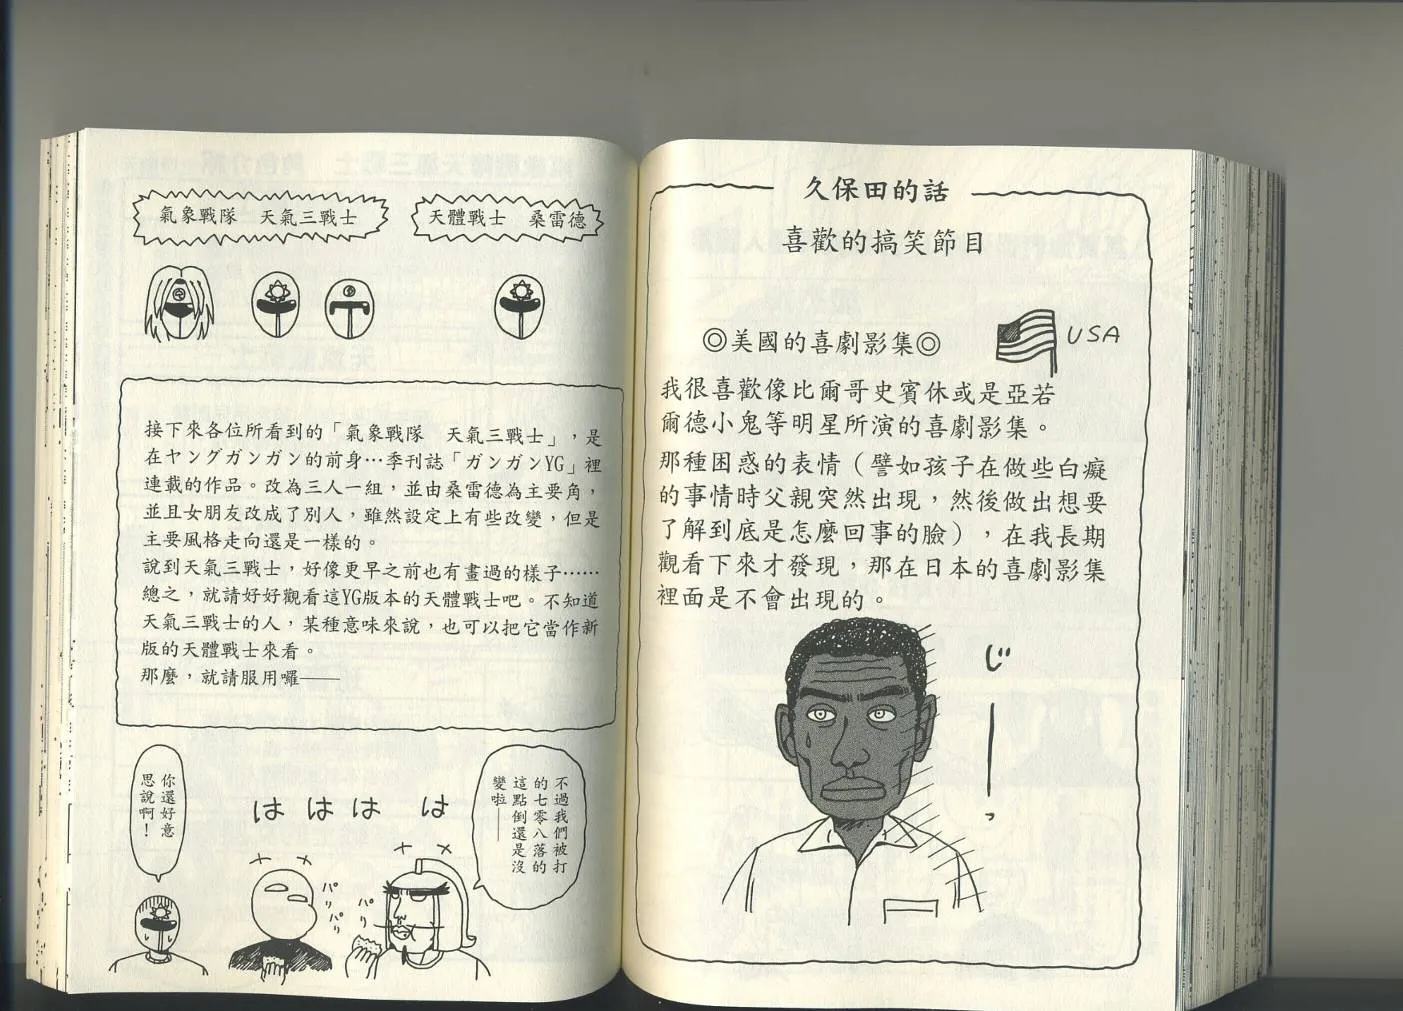 久保田的話
喜歡的搞笑節目
◎美國的喜劇影集◎
USA
我很喜歡像比爾哥史賓休或是亞若
爾德小鬼等明星所演的喜劇影集。
那種困惑的表情（譬如孩子在做些白癡
的事情時父親突然出現，然後做出想要
了解到底是怎麼回事的臉），在我長期
觀看下來才發現，那在日本的喜劇影集
裡面是不會出現的。
じーっ
氣象戰隊　天氣三戰士
天體戰士　桑雷德
接下來各位所看到的「氣象戰隊　天氣三戰士」，是
在ヤングガンガン的前身…季刊誌「ガンガンYG」裡
連載的作品。改為三人一組，並由桑雷德為主要角，
並且女朋友改成了別人，雖然設定上有些改變，但是
主要風格走向還是一樣的。
說到天氣三戰士，好像更早之前也有畫過的樣子……
總之，就請好好觀看這YG版本的天體戰士吧。不知道
天氣三戰士的人，某種意味來說，也可以把它當作新
版的天體戰士來看。
那麼，就請服用囉——
不過我們被打
的七零八落的
這點倒還是沒
變啦——
は は は は
パリパリ
パリ
你還好意
思說啊！